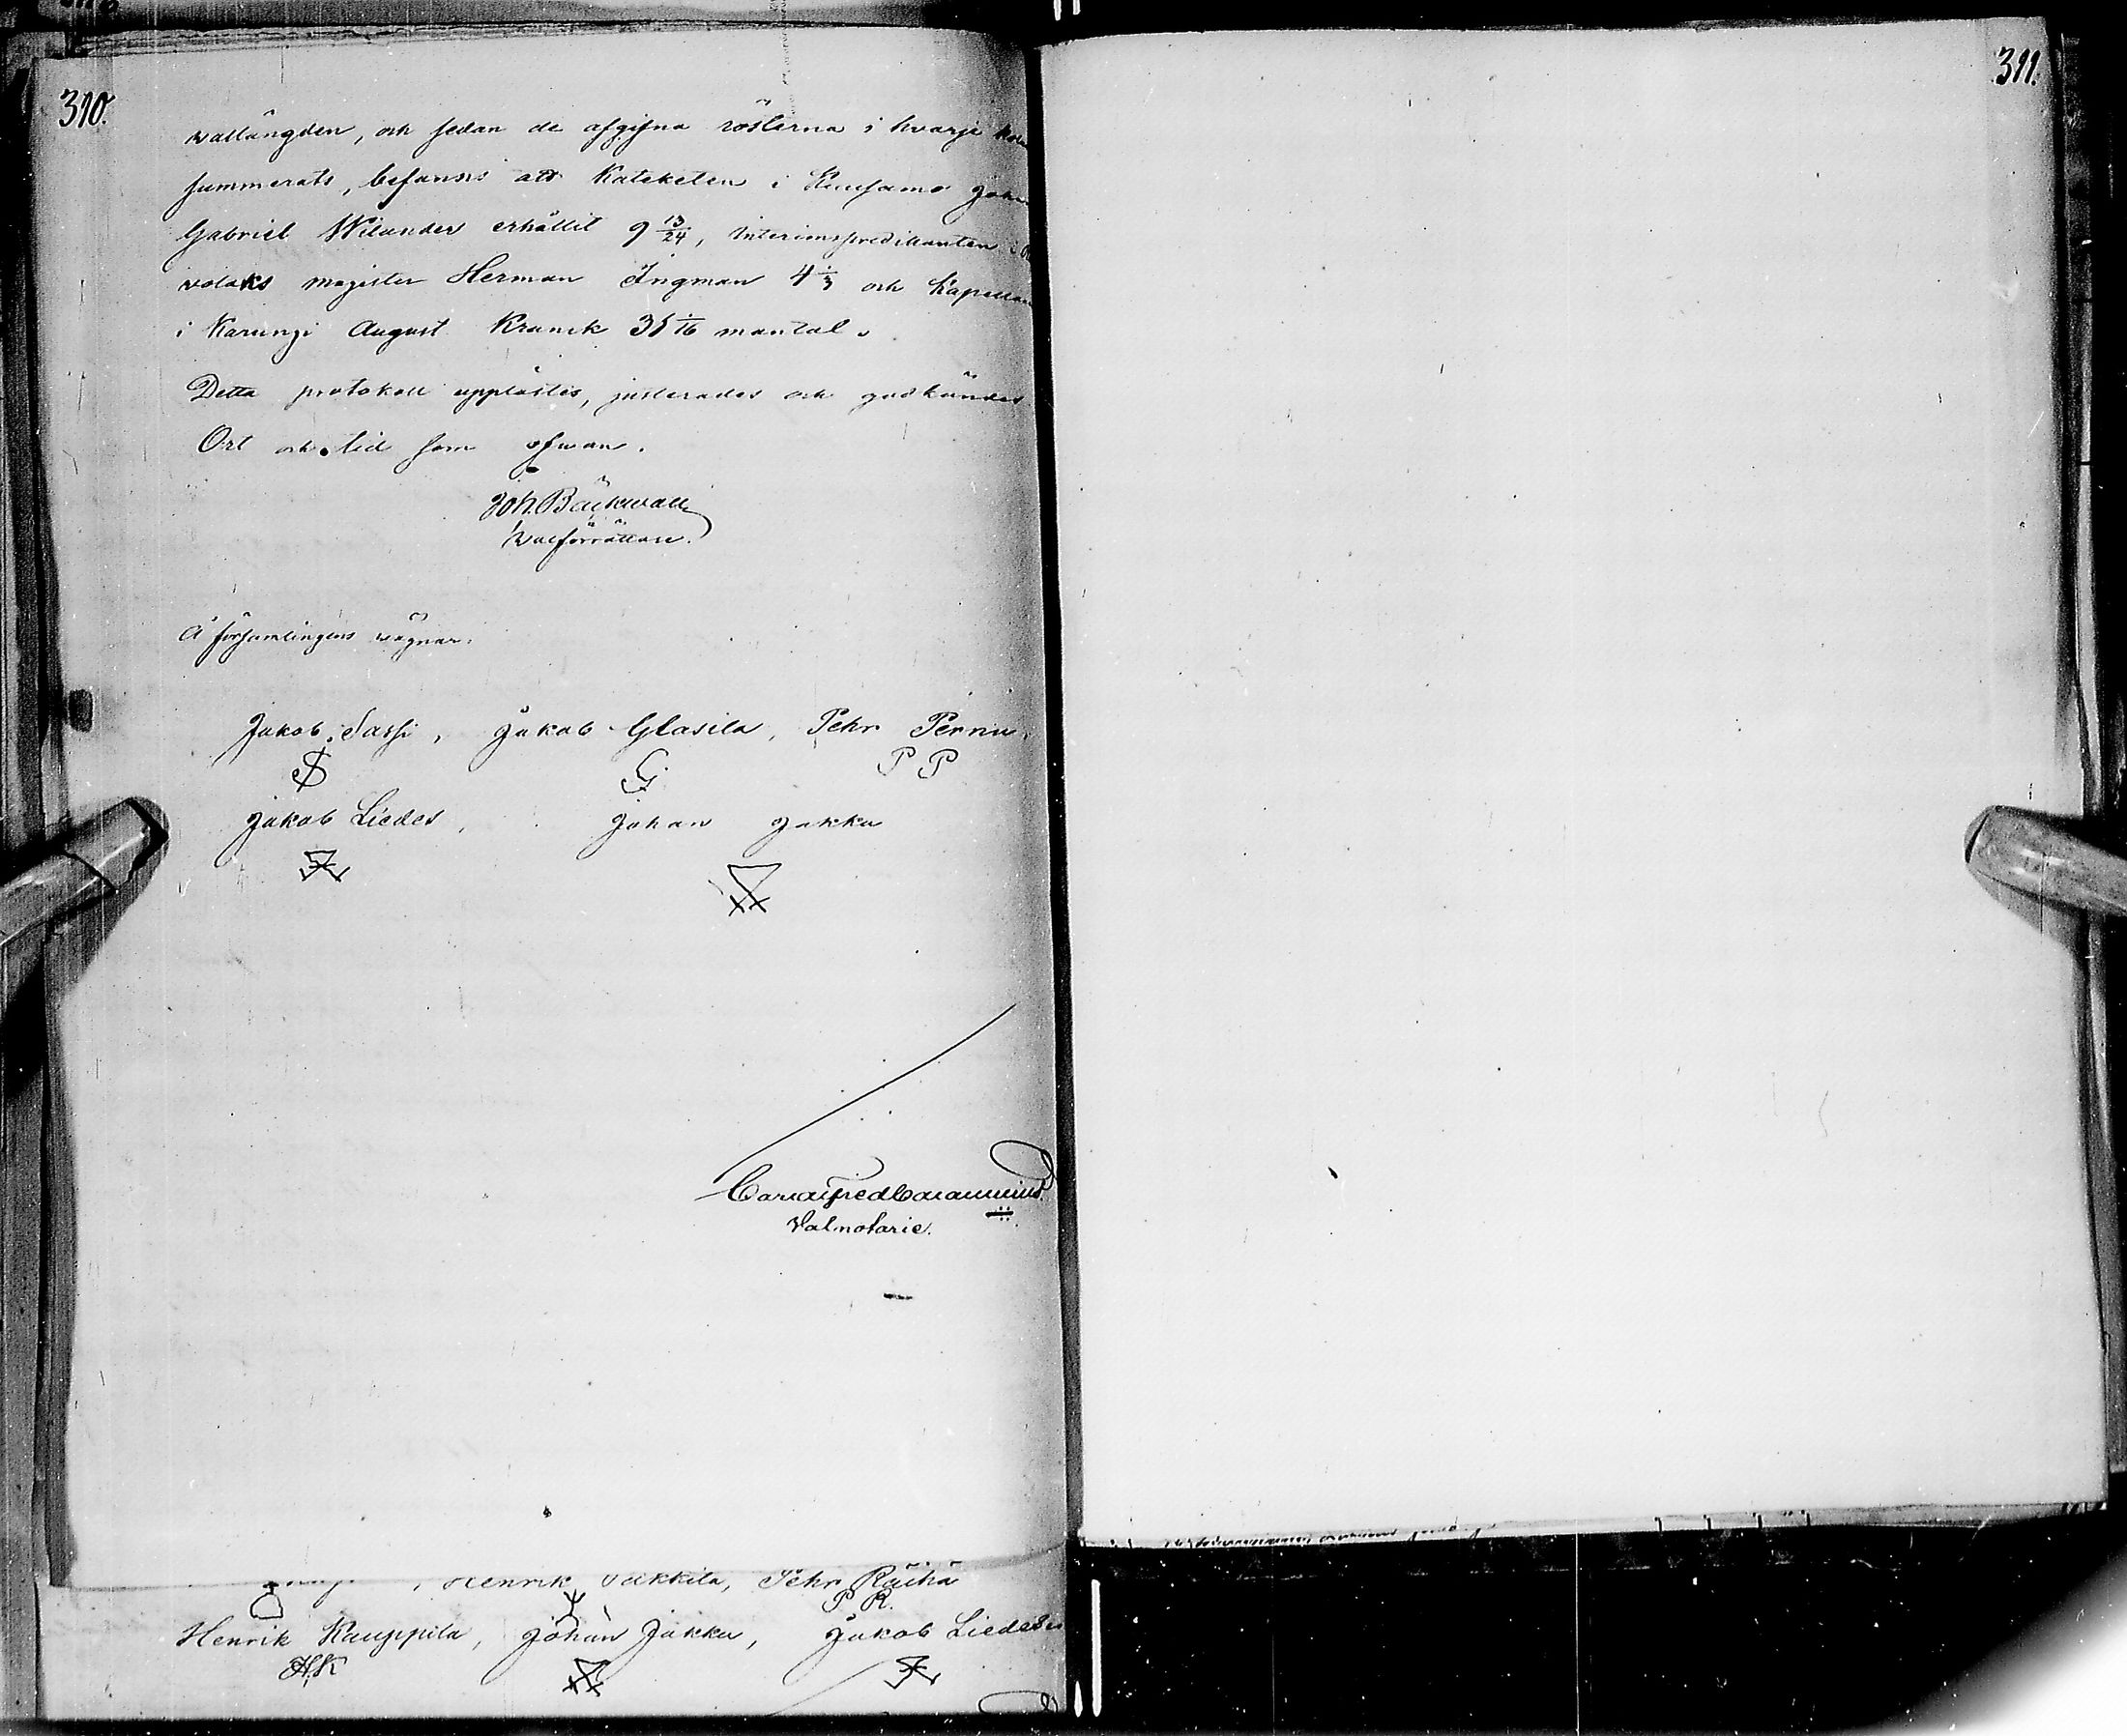 310.
311.
vallängden, och sedan de afgifna rösterna i hvarje
summerats, befanns att Kateketen i Kuusamo Joha
Gabriel Wilander erhållit 9 13/24, Interimspredikanten i
volaks magister Herman Ingman 4 1/3 och Kapellan
i Karungi August Kranck 35 1/16 mantal.
Detta protokoll upplästes, justerades och godkändes
Ort och tid som ofwan.
Joh. Bäckwall
Walförrättare.
Å församlingens wägnar:
Jakob Sassi, Jakob Glasila, Pehr Pernu.
S G P P
Jakob Liedes, Johan Jakku
Valnotarie.
Henrik Pehr Räihä
P. R.
Henrik Kauppila, Johan Jakku, Jakob Liedes
H.K